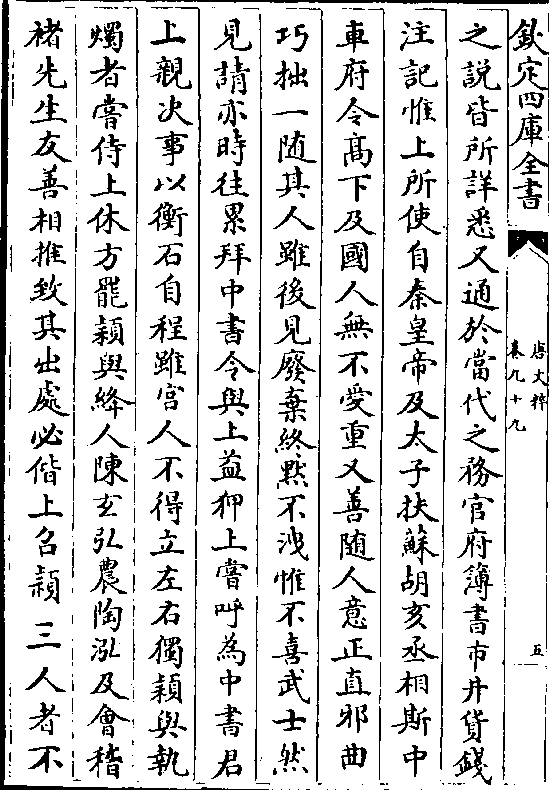 欽定四庫全書
唐文粹
卷九十九
五
之說皆所詳悉又通於當代之務官府簿書市井貨錢
注記惟上所使自秦皇帝及太子扶蘇胡亥丞相斯中
車府令髙下及國人無不愛重又善随人意正直邪曲
巧拙一随其人雖後見廢棄終黙不洩惟不喜武士然
見請亦時往累拜中書令與上益狎上嘗呼為中書君
上親決事以衡石自程雖宫人不得立左右獨潁與執
燭者嘗侍上休方罷潁與絳人陳𤣥弘農陶泓及會稽
褚先生友善相推致其出處必偕上召潁三人者不